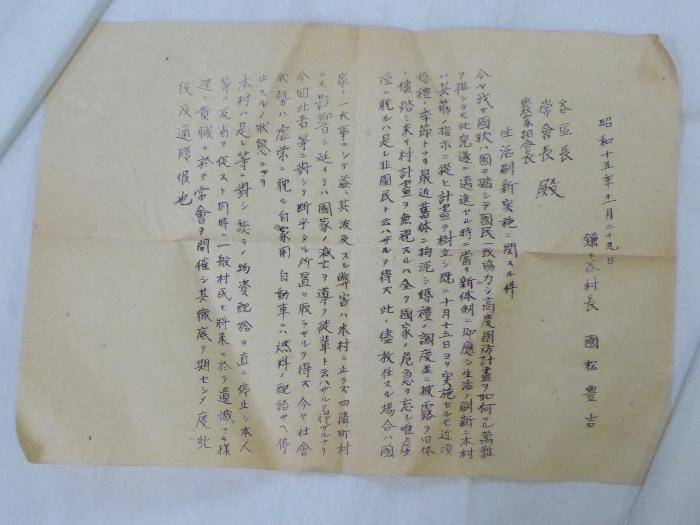 昭和十五年十一月二十九日
鎌ヶ谷村長 國松豊吉
各區長
常會長 殿
農家組合長
生活刷新実施ニ関スル件
今ヤ我ガ國状ハ國ヲ賭シテ國民一致協力シ高度國防計畫ヲ如何ナル萬難
ヲ排シテモ此完遂ニ邁進セル時ニ當リ新体制ニ即應シ生活ノ刷新ニ本村
ハ其筋ノ指示ニ從ヒ計畫ヲ樹立シ既ニ十月十五日ヨリ実施セルモ近頃
婚禮ノ季節トナリ最近舊体ニ拘泥シ婚禮ノ調度並ニ披露ヲ旧体
ノ儘踏ミ来リ村計畫ヲ無視スルハ全ク國家ノ危急ヲ忘レ唯虚
禮ニ亲ルハ是レ非國民ト云ハザルヲ得ズ 此ノ儘放任スル場合ハ國
家ノ一大事ニシテ益々其波及スル弊害ハ本村ニ止ラズ四隣町村
ニモ影響シ延イテハ國家ノ滅亡ヲ導ク徒輩ト云ハザルヲ得ザルナリ
今回此者等ニ對シテ断乎タル所置ニ取ラザルヲ得ズ 今ヤ社會
状勢ガ虚栄ニ亲ル自家用自動車ニハ燃料ノ配給サヘ停
止スルノ状態ニアリ
本村ハ是レ等ニ對シ愁テノ物資配給ヲ直ニ停止シ本人
等ノ反省ヲ促スト同時ニ一般村民モ將来ニ於テ遺憾ナキ様
迅ニ貴職ニ於テ常會ヲ開催シ其徹底ヲ期セシメ度此
段及通牒候也